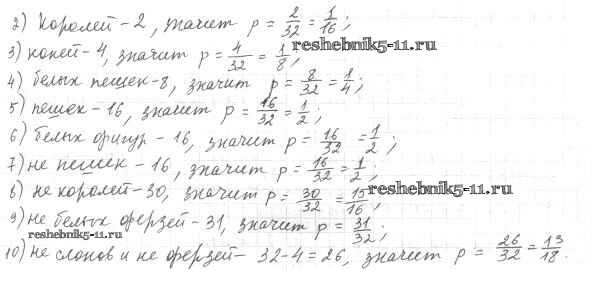 2) Королей-2, значит p = 2/32 = 1/16;
3) коней-4, значит p = 4/32 = 1/8;
reshebnik5-11.ru
4) белых пешек-8, значит p = 8/32 = 1/4;
5) пешек-16, значит p = 16/32 = 1/2;
6) белых фигур-16, значит p = 16/32 = 1/2;
7) не пешек-16, значит p = 16/32 = 1/2;
8) не королей-30, значит p = 30/32 = 15/16;
reshebnik5-11.ru
9) не белых ферзей-31, значит p = 31/32;
reshebnik5-11.ru
10) не слонов и не ферзей- 32-4=26, значит p = 26/32 = 13/18.